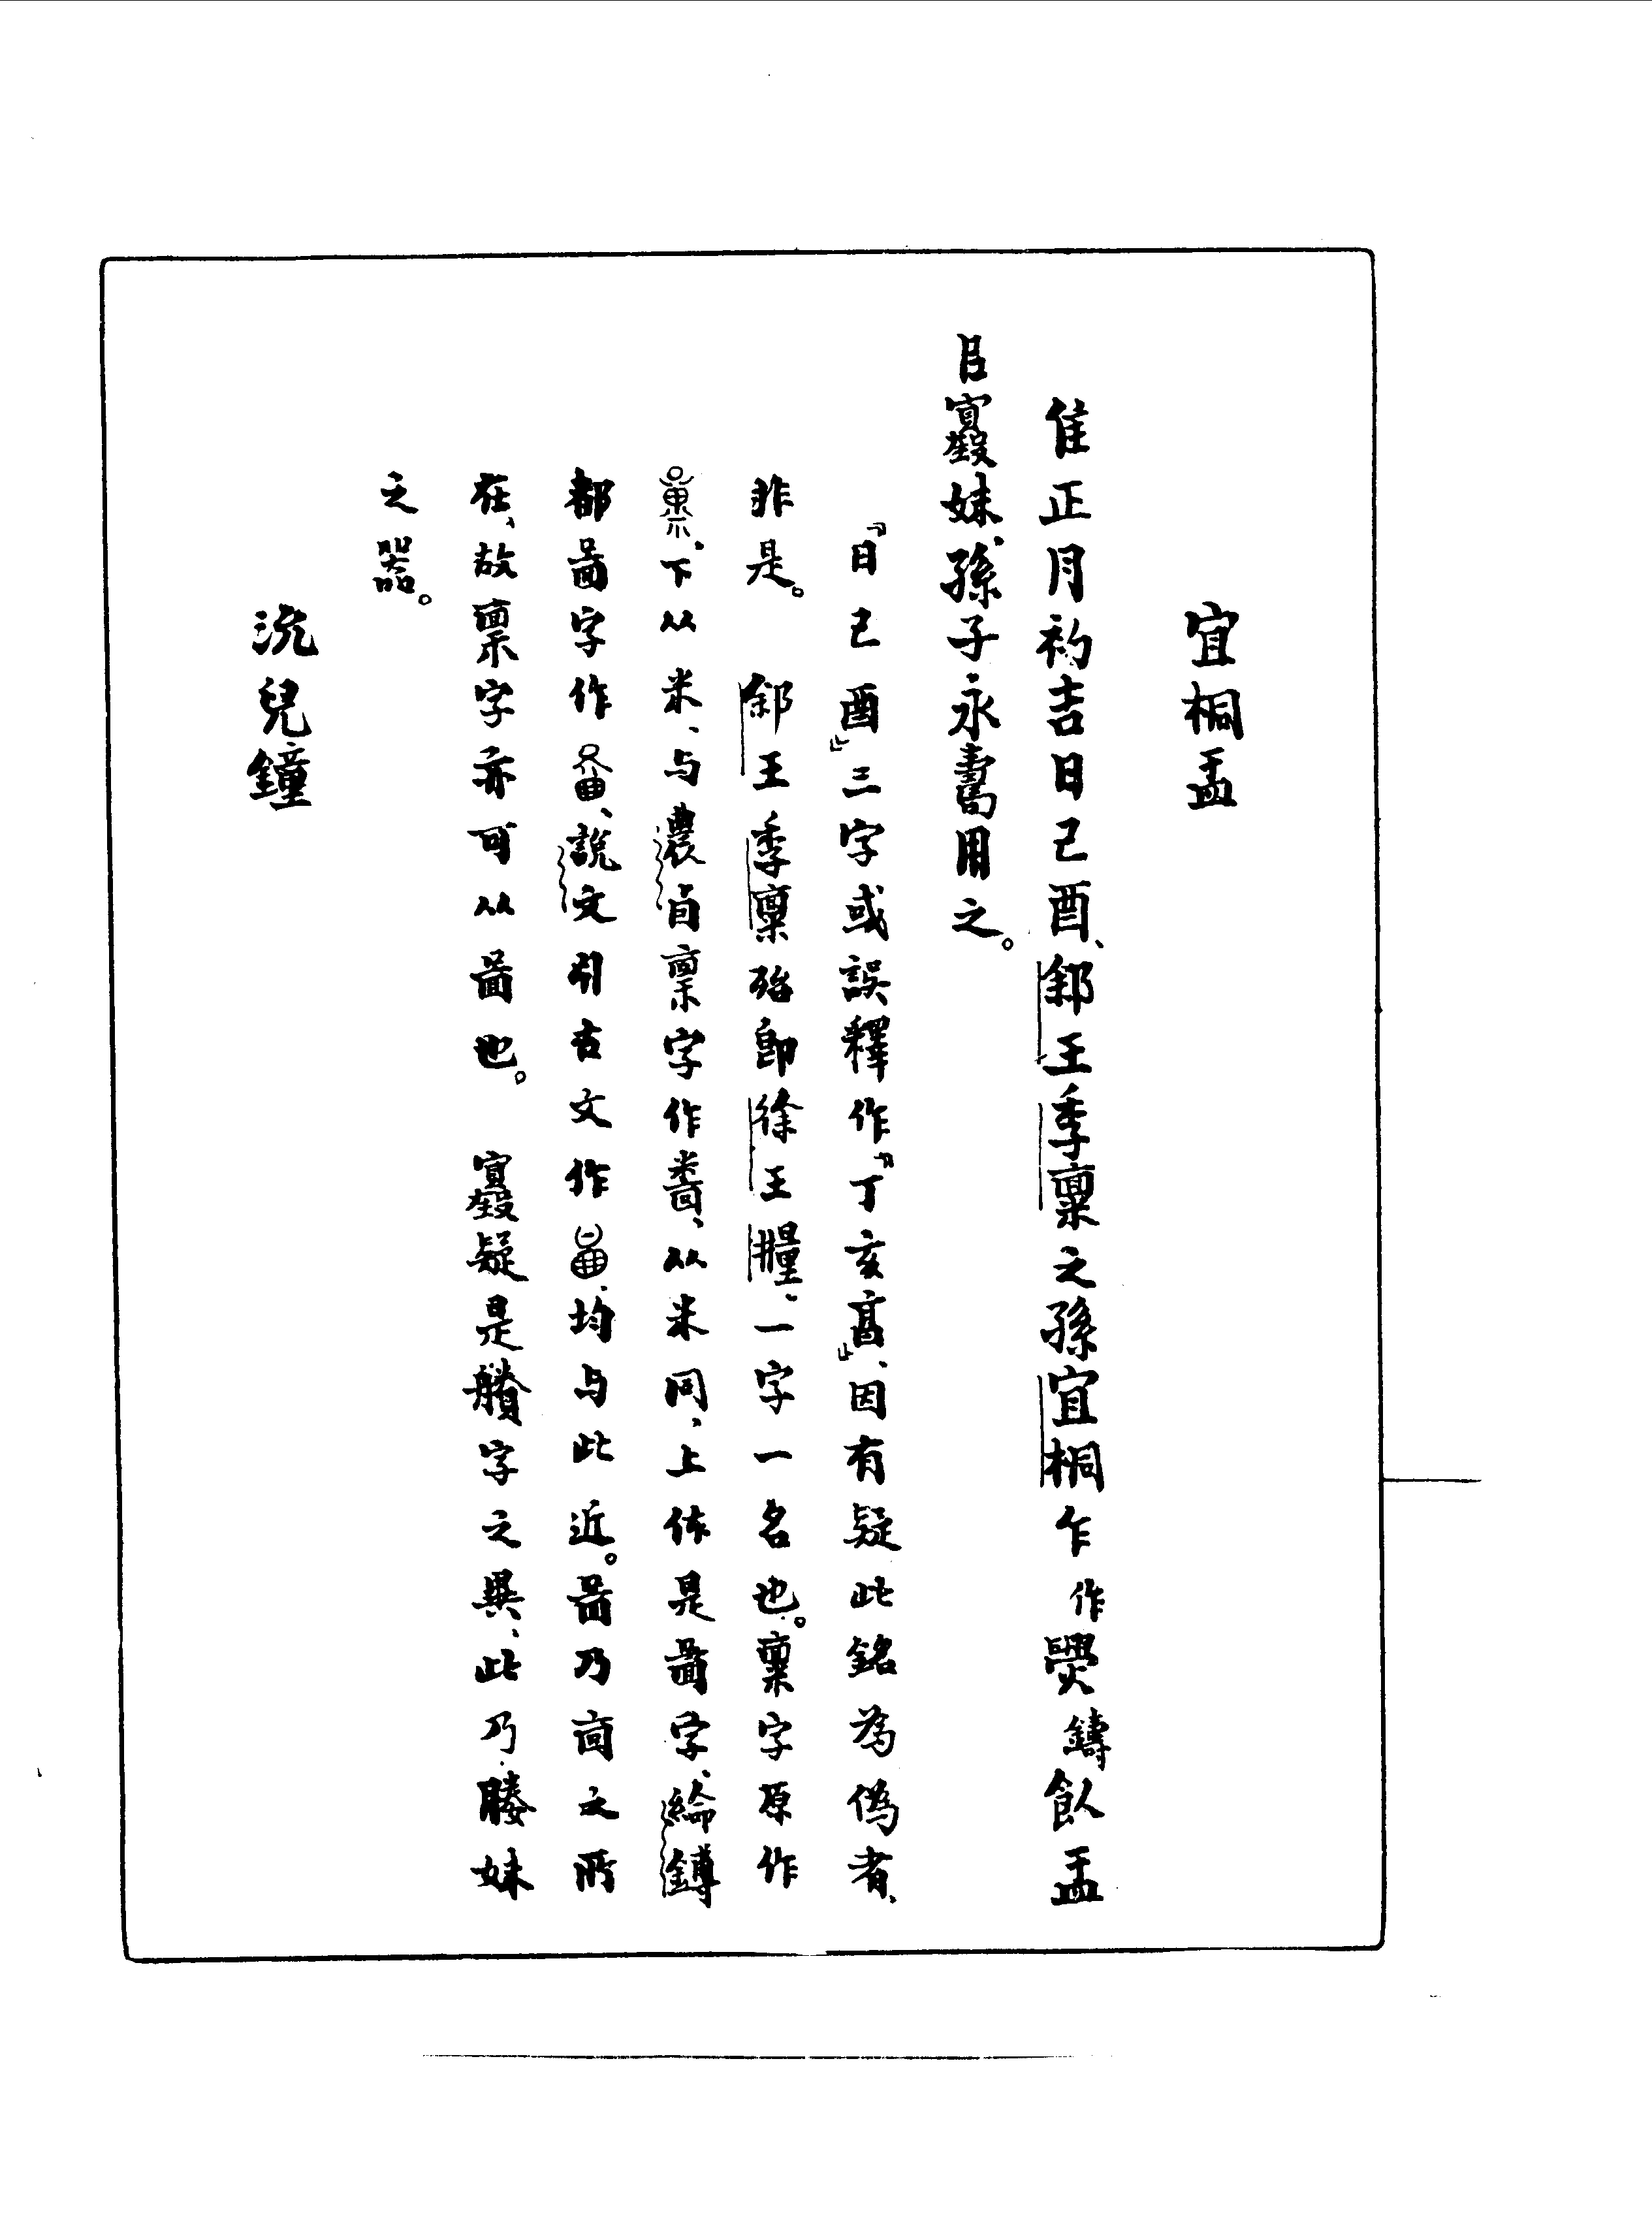 宜桐盂
隹正月初吉日己酉、䣄王季稟之孫宜桐乍作鑄飤盂
㠯妹、孫子永壽用之。
『日己酉』三字或誤釋作『丁亥髙』、因有疑此銘為偽者、
非是。䣄王季稟殆即徐王糧、一字一名也。稟字原作
下从米、与農卣稟字作𤲸、从米同、上体是啚字、綸鎛
都啚字作、說文引古文作、均与此近。啚乃㐭之所
在、故稟字亦可从啚也。疑是賸字之異、此乃媵妹
之器。
沇兒鐘